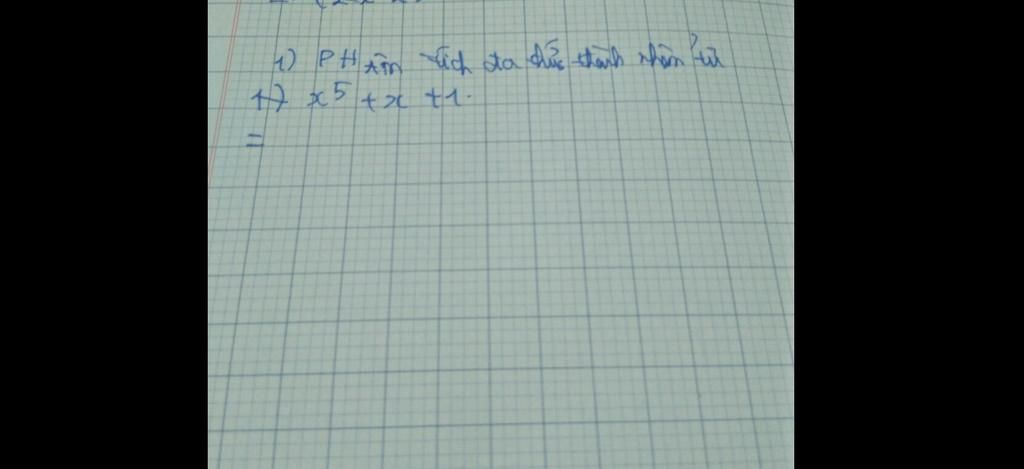 1) PHân tích đa thức thành nhân tử
1) x⁵ + x + 1.
=